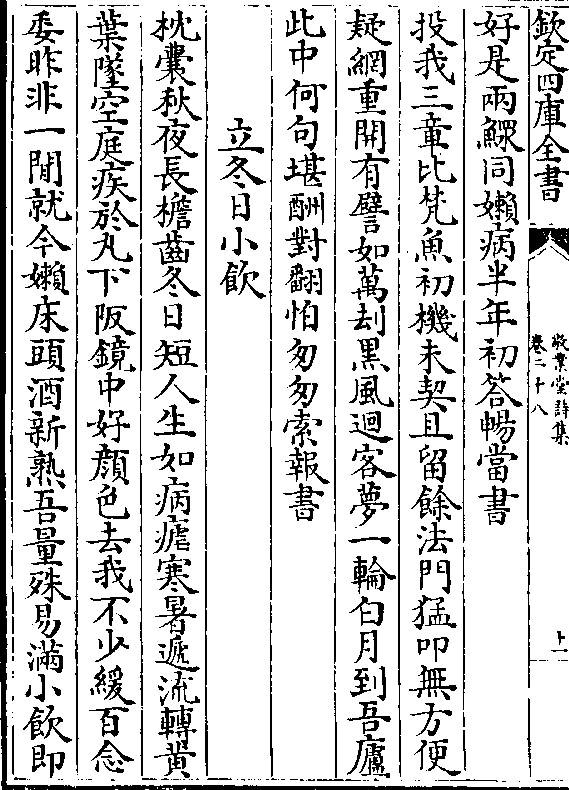 欽定四庫全書
敬業堂詩集
卷二十八
十一
好是兩鰥同嬾病半年初答暢當書
投我三章比梵魚初機未契且留餘法門猛叩無方便
疑網重開有譬如萬刦黒風迴客夢一輪白月到吾廬
此中何句堪酬對翻怕匆匆索報書
立冬日小飲
枕囊秋夜長檐齒冬日短人生如病瘧寒暑遞流轉黄
葉墜空庭疾於丸下阪鏡中好顔色去我不少緩百念
委昨非一閒就今嬾床頭酒新熟吾量殊易滿小飲即